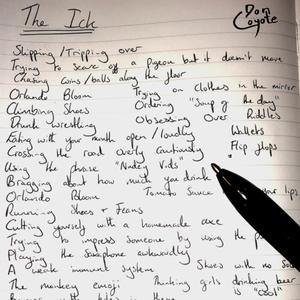 The Ick
Don Coyote
Slipping / Tripping over
Trying to scare off a pigeon but it doesn't move
Chasing coins / balls along the floor
Orlando Bloom
Trying on Clothes in the mirror
Climbing Shoes
Ordering "Soup of the day"
Drunk wrestling
Obsessing Over Riddles
Eating with your mouth open / loudly
Wallets
Crossing the road overly Cautiously
Flip flops
Using the phrase "Nudey Vids"
Bragging about how much you drink
Orlando Bloom
Tomato Sauce your lips
Running Shoes + Jeans
Cutting yourself with a homemade axe
Trying to impress someone by using the
Playing the Saxophone awkwardly
A weak immune system
Shoes with no
The monkey emoji
Thinking girls drinking beer
is "cool"